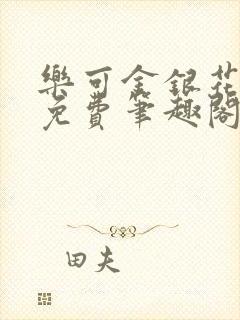 樂可金銀花
免費筆趣閣
田夫